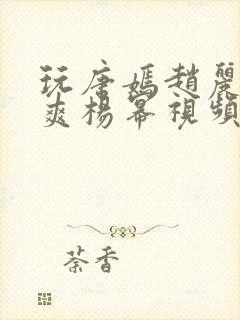 玩唐嫣趙麗
爽楊幂視頻
荼香